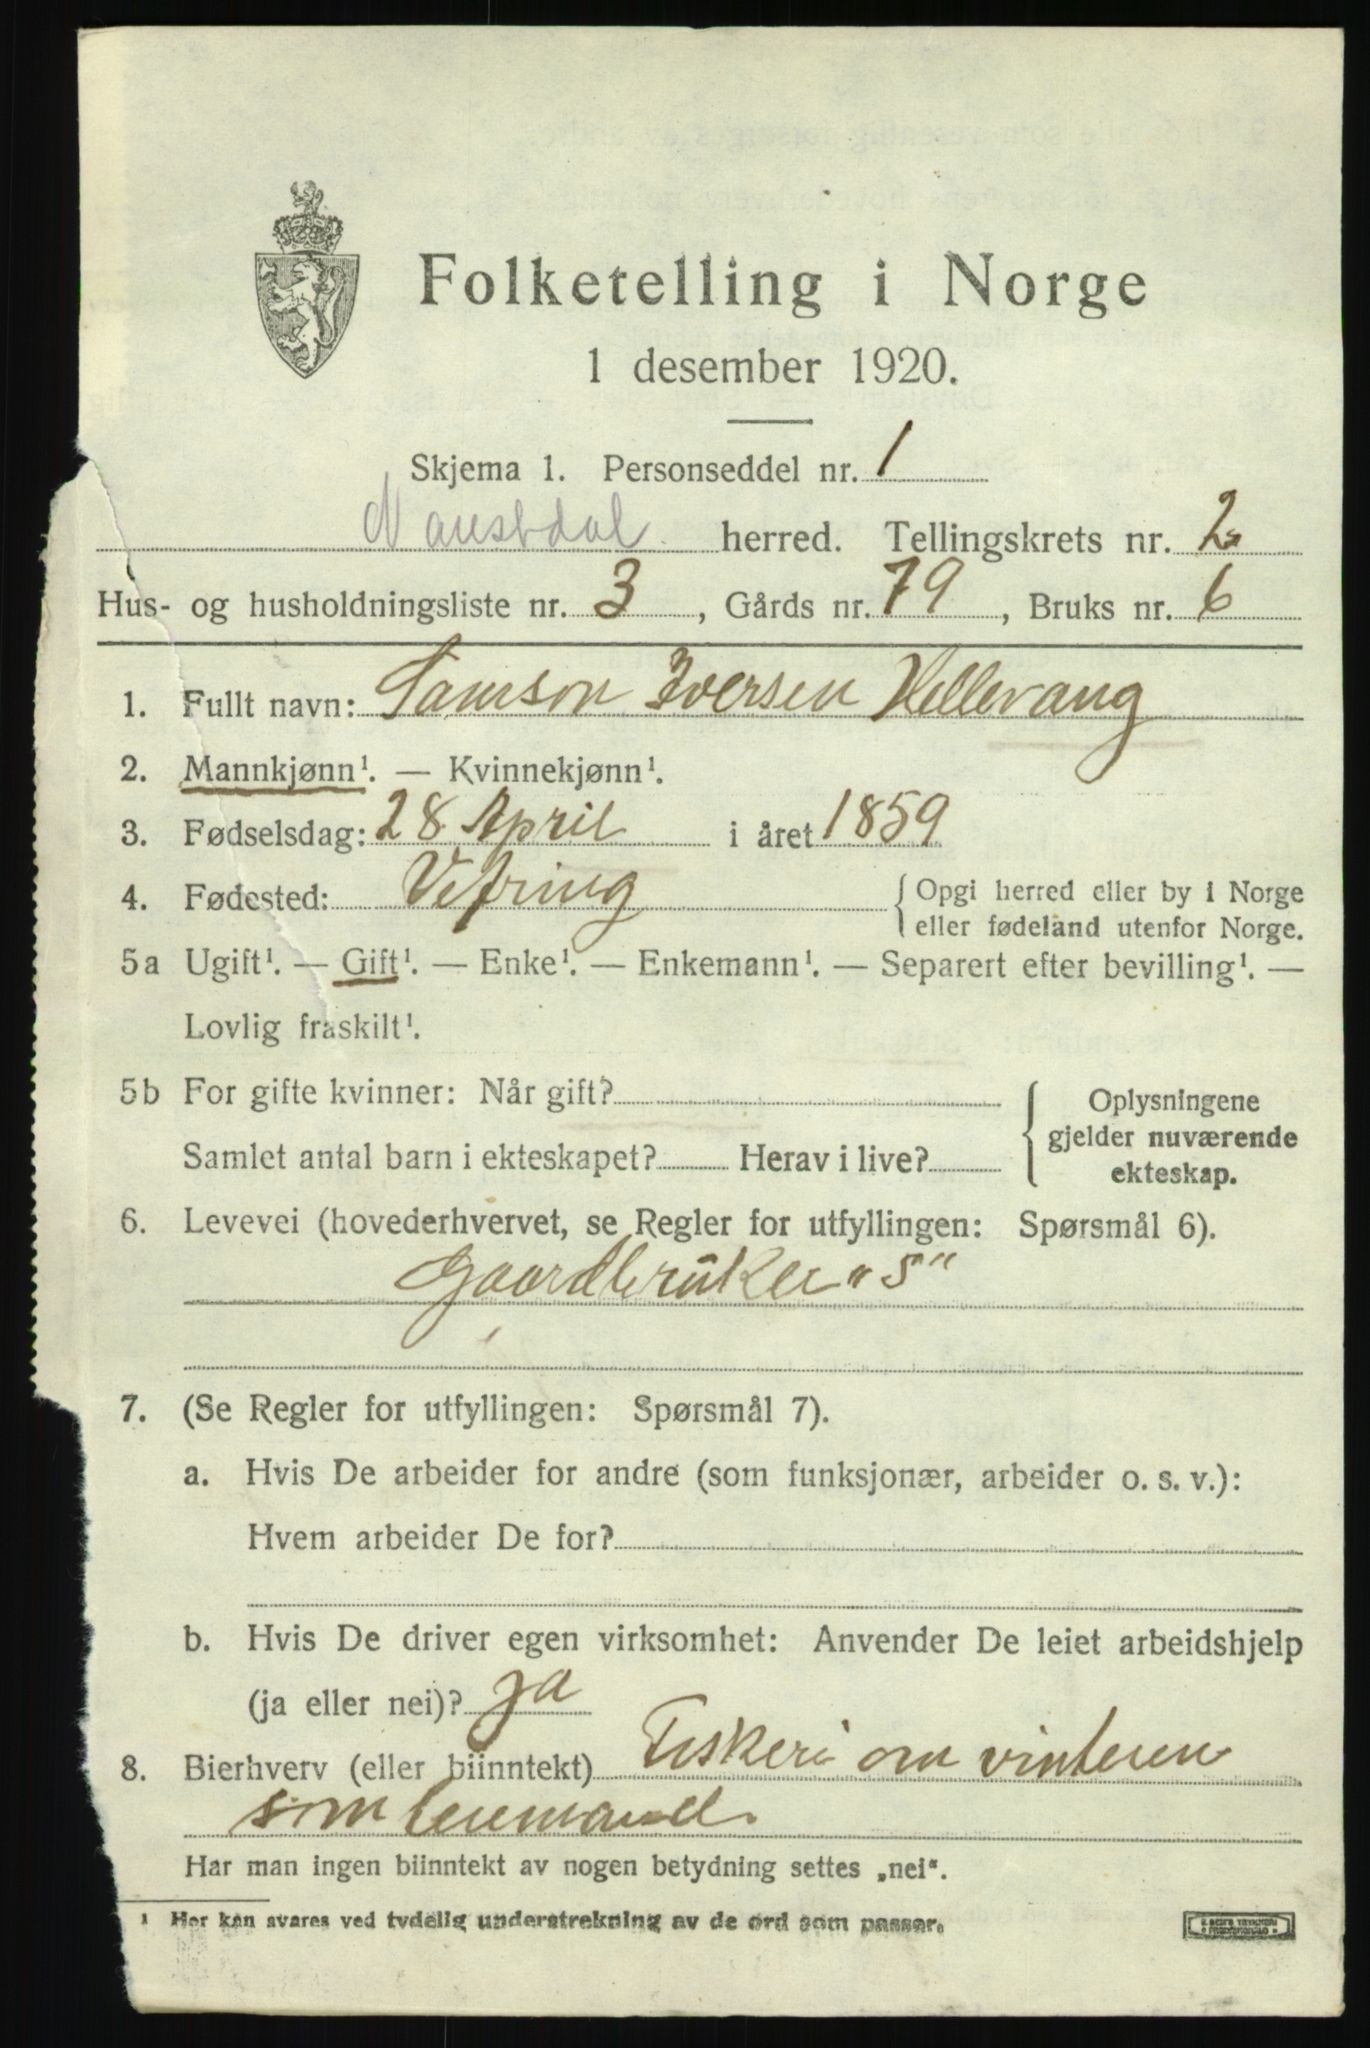 Folketelling i Norge
1 desember 1920.
Skjema 1. Personseddel nr. 1
Naustdal herred. Tellingskrets nr. 2
Hus- og husholdningsliste nr. 3, Gårds nr. 79, Bruks nr. 6
1. Fullt navn: Samson Iversen Hellevang
2. Mannkjønn¹. — Kvinnekjønn¹.
3. Fødselsdag: 28 April i året 1859
4. Fødested: Vefring { Opgi herred eller by i Norge
eller fødeland utenfor Norge.
5a Ugift¹. — Gift¹. — Enke¹. — Enkemann¹. — Separert efter bevilling¹. —
Lovlig fraskilt¹.
5b For gifte kvinner: Når gift? { Oplysningene
gjelder nuværende
Samlet antal barn i ekteskapet? Herav i live? ekteskap.
6. Levevei (hovederhvervet, se Regler for utfyllingen: Spørsmål 6).
Gaardbruker "S"
7. (Se Regler for utfyllingen: Spørsmål 7).
a. Hvis De arbeider for andre (som funksjonær, arbeider o. s. v.):
Hvem arbeider De for?
b. Hvis De driver egen virksomhet: Anvender De leiet arbeidshjelp
(ja eller nei)? ja
8. Bierhverv (eller biinntekt) Fiskeri om vinteren
som leiemand.
Har man ingen biinntekt av nogen betydning settes „nei“.
¹ Her kan svares ved tydelig understrekning av de ord som passer.